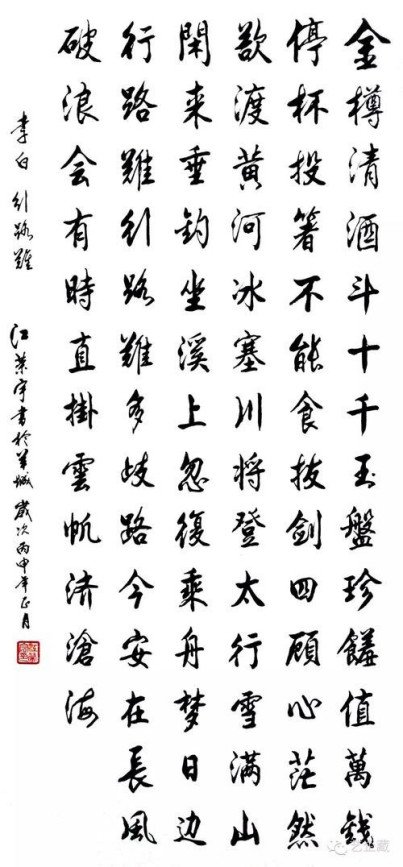 金樽清酒斗十千玉盤珍饈值萬錢
停杯投箸不能食拔劍四顧心茫然
欲渡黄河冰塞川将登太行雪滿山
閑来垂釣坐溪上忽復乘舟梦日边
行路難行路難多歧路今安在長風
破浪会有時直掛雲帆济滄海
李白行路難 江宇書於羊城歲次丙申年正月